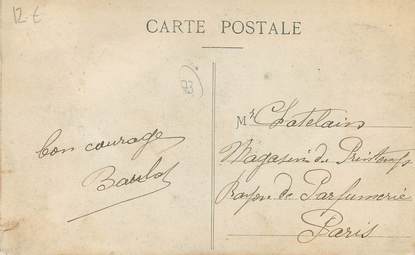 12-€
CARTE POSTALE
83
bon courage
Mr Chatelain
Magasins du Printemps
Rayon de Parfumerie
Paris